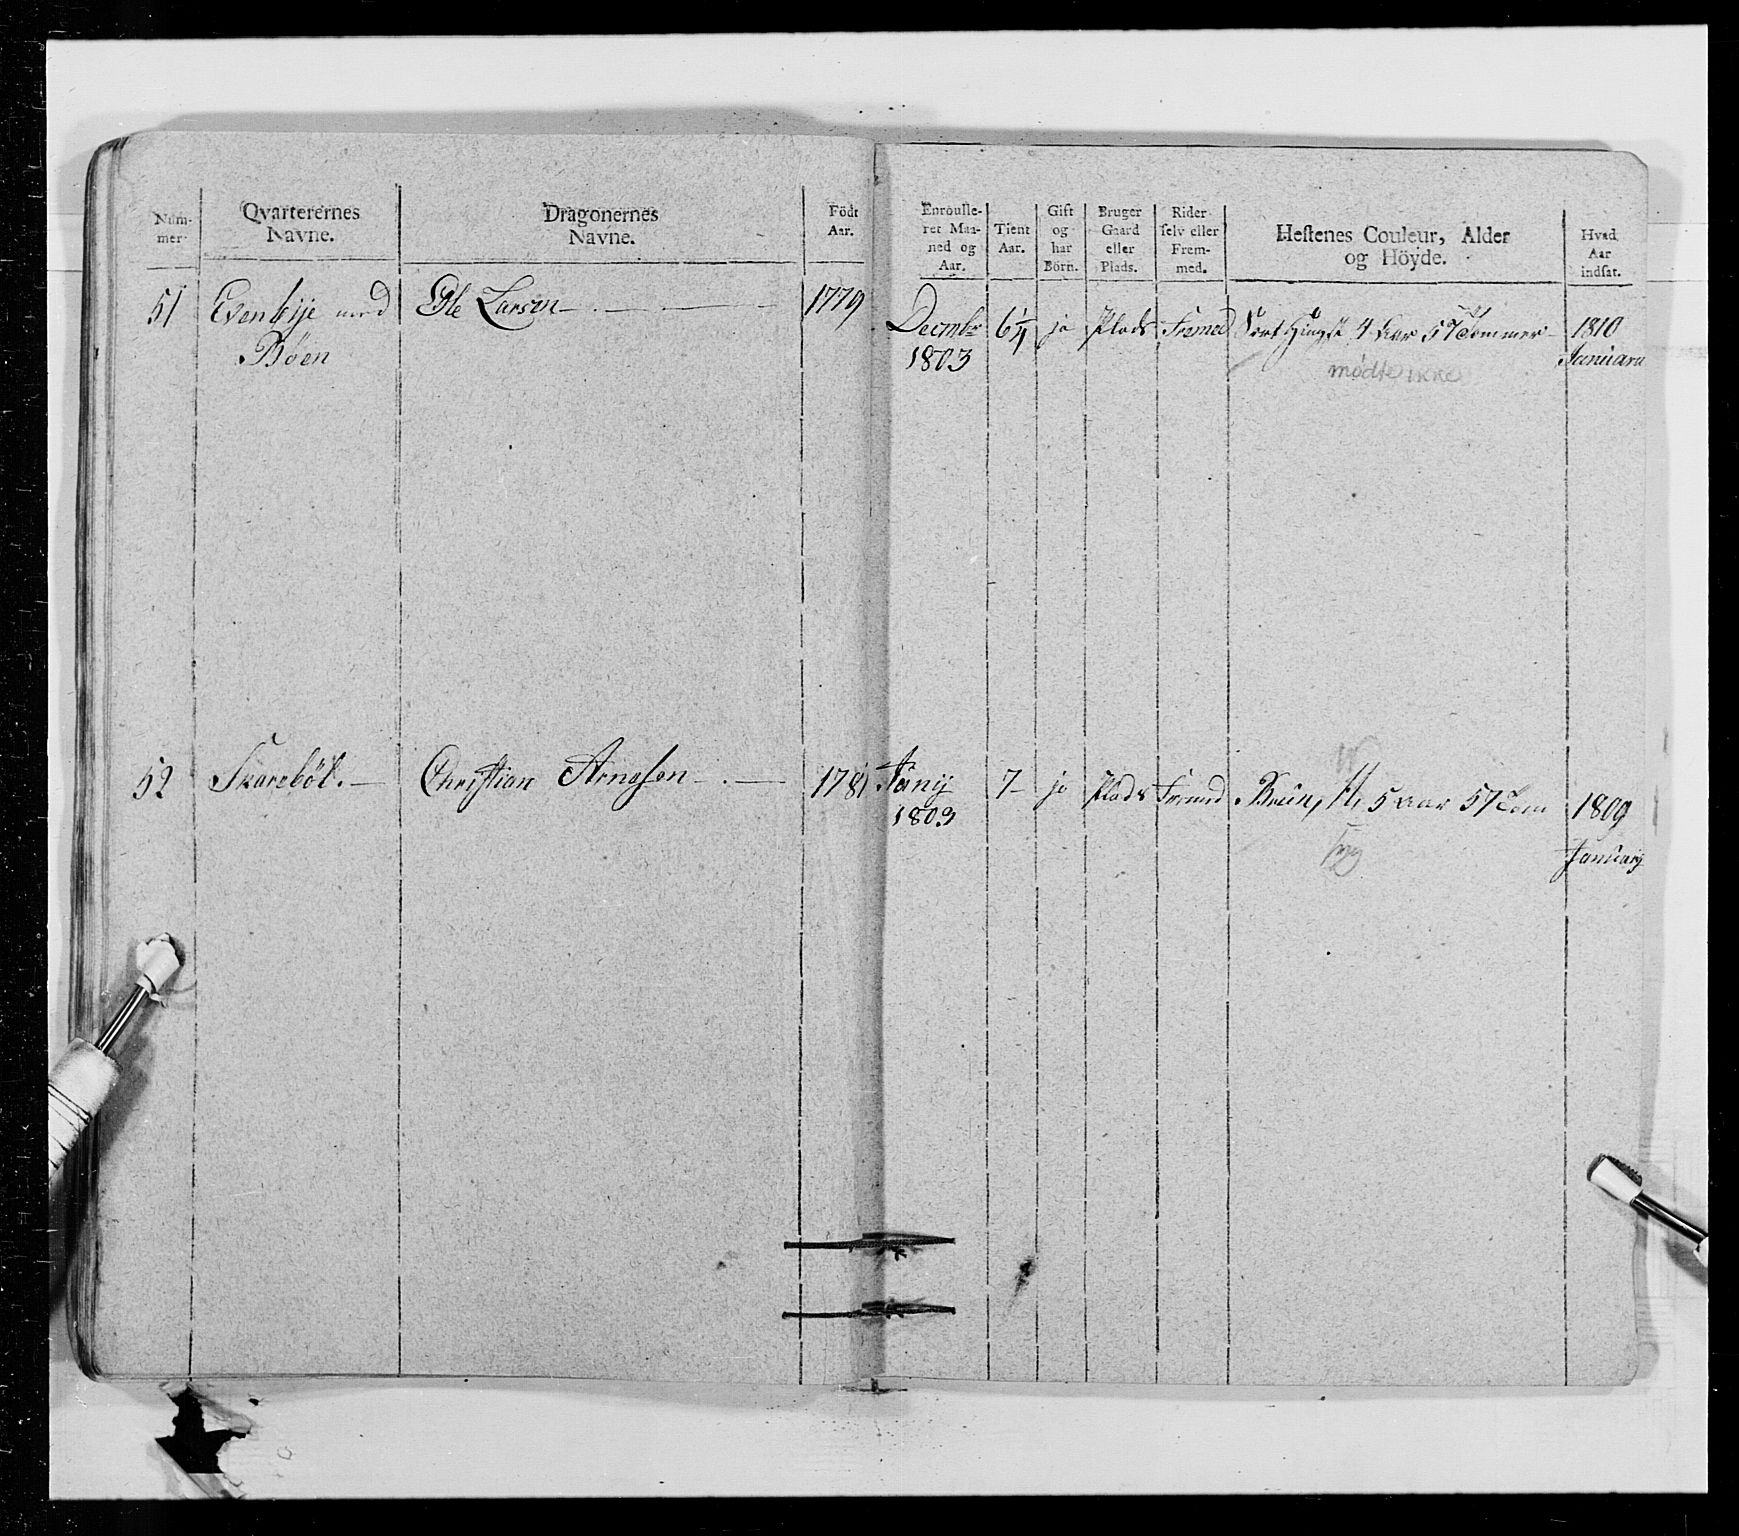 Num-
mer
Qvarterernes
Navne.
Dragonernes
Navne.
Födt
Aar.
Enroulle-
ret Maa-
ned og
Aar.
Tient
Aar.
Gift
og
har
Börn.
Bruger
Gaard
eller
Plads.
Rider
selv eller
Frem-
med.
Hestenes Couleur, Alder
og Höyde.
Hvad
Aar
indsat.
51 Evenbije med Ole Larsen 1779 Decmbr 6¼ ja Plads Fremed Sort Hingst 4 Aar 57 Tommer 1810
Bøen 1803 Januarii
mødte ikke
52 Skarebøl. Christian Arnesen 1781 Junij 7 ja Plads Fremed Bruun, H, 5 aar 57 Tom 1809
1803
syg
Januarij